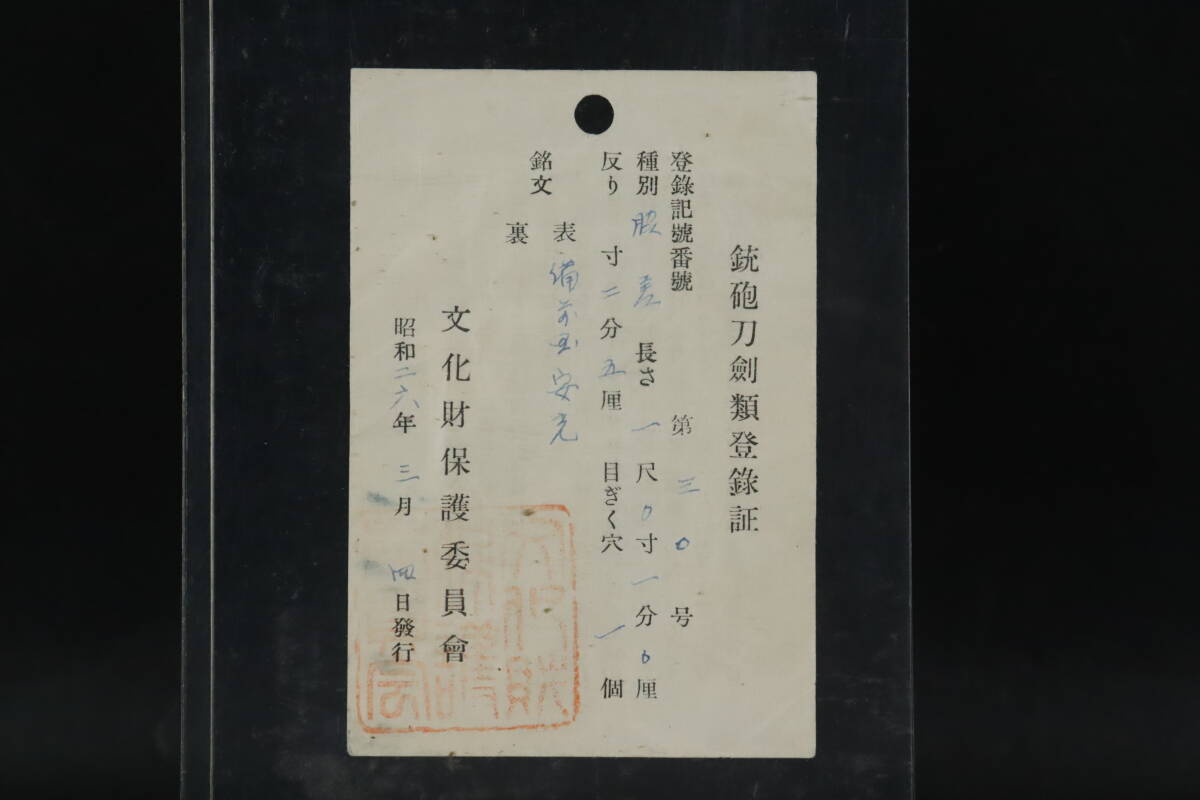 銃砲刀劍類登錄証
登錄記號番號 第三〇号
種別 脇差 長さ一尺〇寸一分〇厘
反り 寸二分五厘 目ぎく穴 一個
銘文 表 備前国安光
裏
文化財保護委員會
昭和二六年三月四日發行